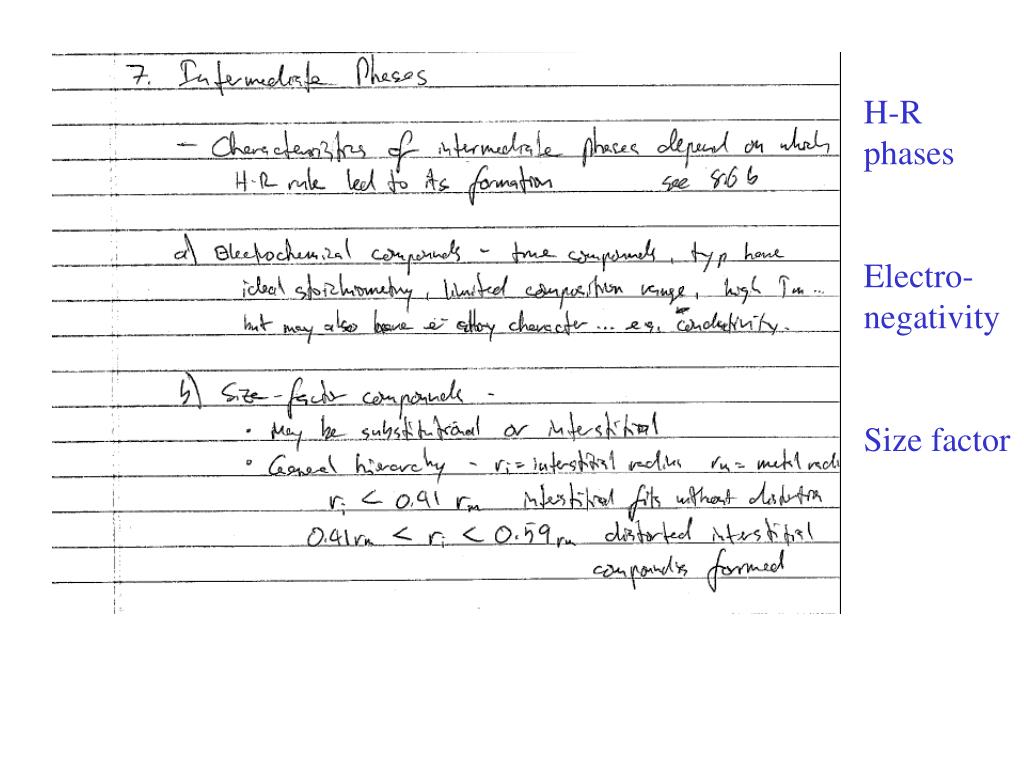 7. Intermediate Phases
- Characteristics of intermediate phases depend on which
H-R rule led to its formation see 8.6 b
a) Electrochemical compounds - true compounds, typ have
ideal stoichiometry, limited composition range, high Tm ...
but may also have e- alloy character ... e.g. conductivity.
b) Size-factor compounds -
• May be substitutional or interstitial
• General hierarchy - ri = interstitial radius rm = metal radi
ri < 0.41 rm interstitial fits without distortion
0.41 rm < ri < 0.59 rm distorted interstitial
compounds formed
H-R
phases
Electro-
negativity
Size factor